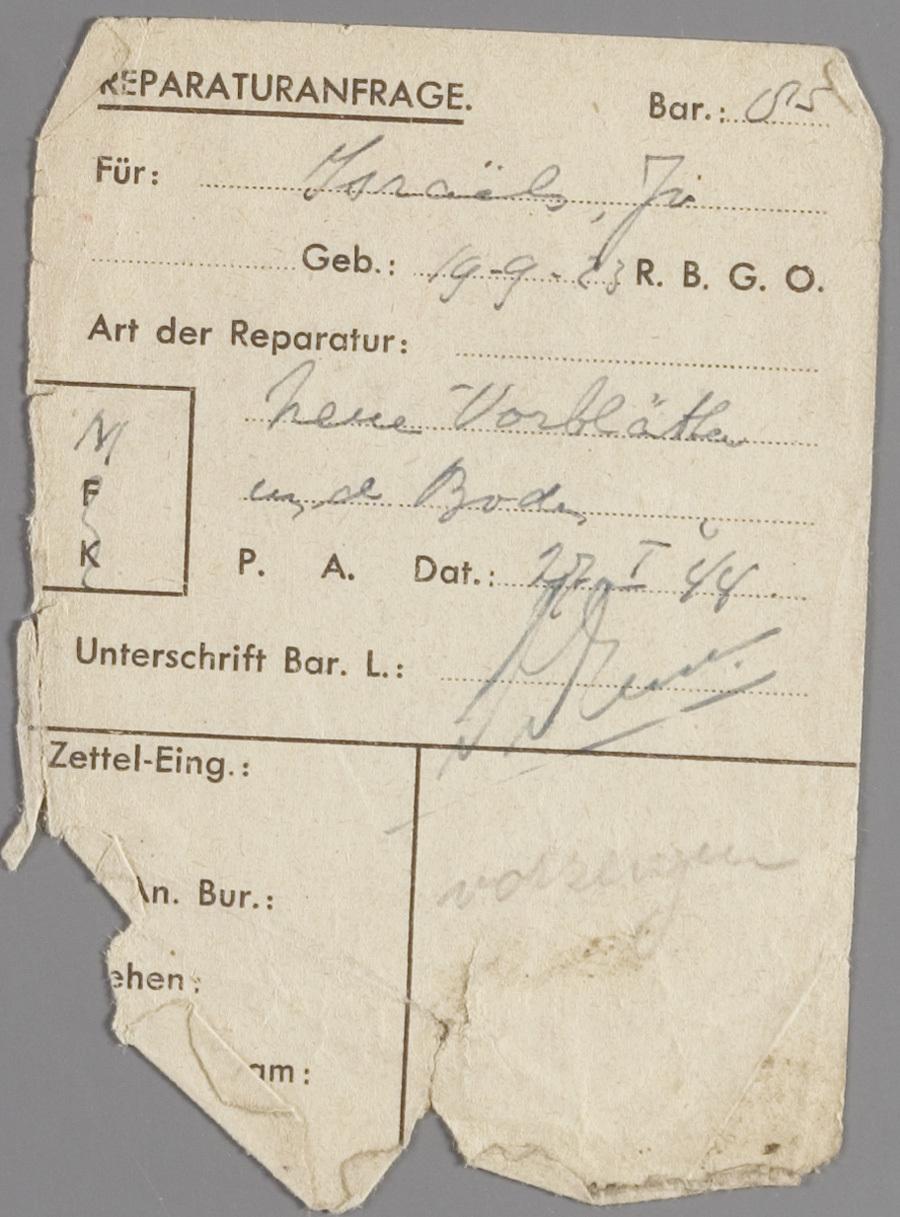 REPARATURANFRAGE. Bar.: 85
Für: Israëls, Jo
Geb.: 19-9-23 R. B. G. O.
Art der Reparatur:
neue Vorblätter
M
und Boden
F
K P. A. Dat.: 27 I 44.
Unterschrift Bar. L.:
Zettel-Eing.:
vorzeigen
An. Bur.:
ehen:
am: